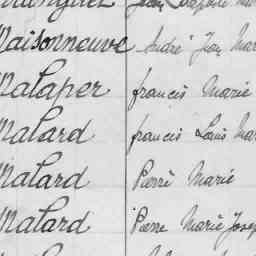 Maisonneuve André Jean Mar
Malaper francis Marie
Malard francis Louis Mar
Malard Pierre Marie
Malard Pierre Marie Josep